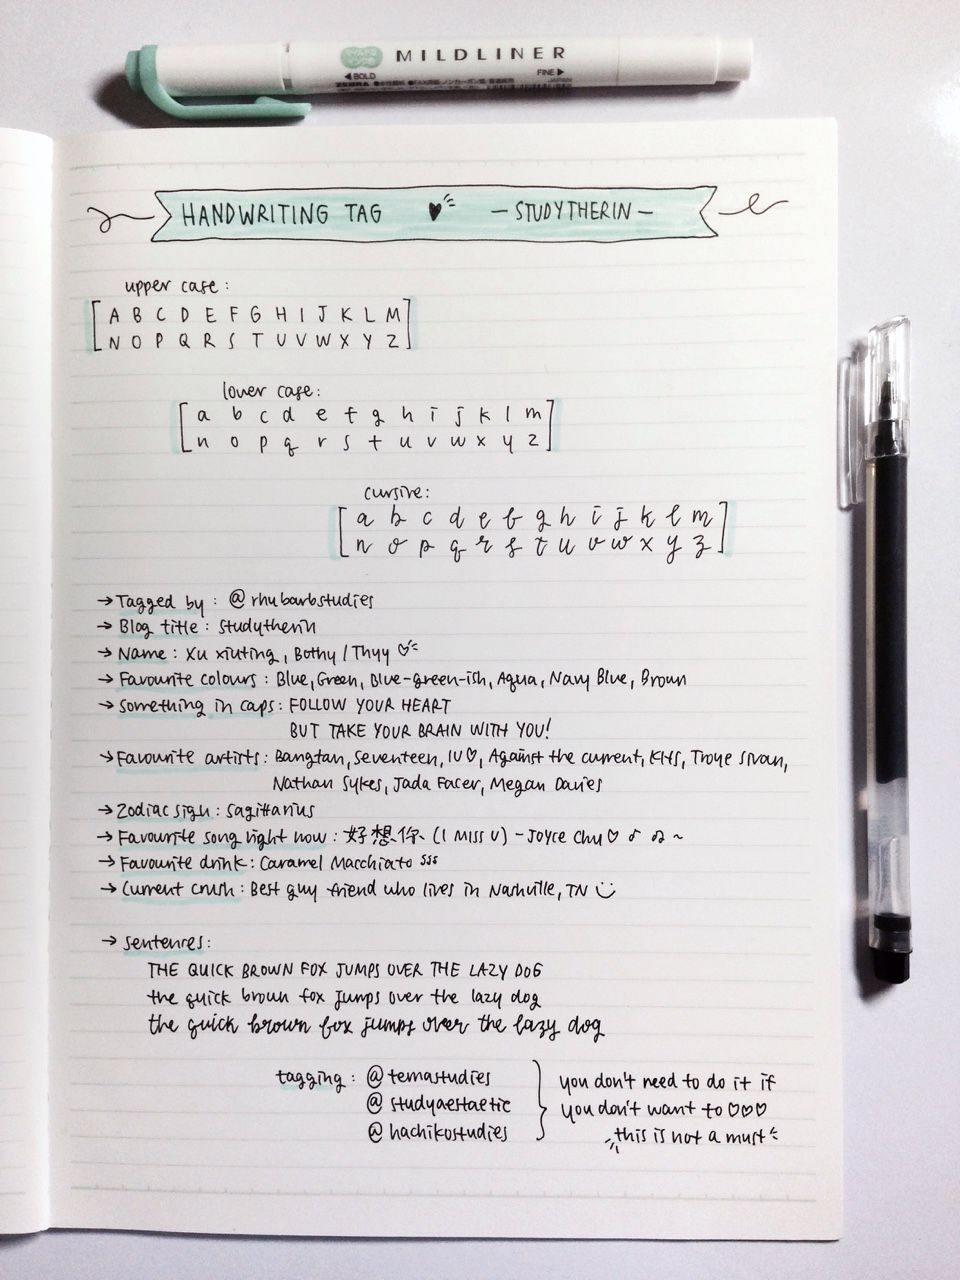 MILDLINER
◀BOLD FINE▶
ZEBRA JAPAN
HANDWRITING TAG ♥ — STUDYTHERIN —
upper case:
A B C D E F G H I J K L M
N O P Q R S T U V W X Y Z
lower case:
a b c d e f g h i j k l m
n o p q r s t u v w x y z
cursive:
a b c d e f g h i j k l m
n o p q r s t u v w x y z
→ Tagged by: @rhubarbstudies
→ Blog title: studytherin
→ Name: Xu xiuting, Bothy / Thyy ♡
→ Favourite colours: Blue, Green, Blue-green-ish, Aqua, Navy Blue, Brown
→ Something in caps: FOLLOW YOUR HEART
BUT TAKE YOUR BRAIN WITH YOU!
→ Favourite artists: Bangtan, Seventeen, IU♡, Against the current, KHS, Troye Sivan,
Nathan Sykes, Jada Facer, Megan Davies
→ Zodiac sign: Sagittarius
→ Favourite song right now: 好想你 (I MISS U) - Joyce Chu ♡ ♪ ♫ ~
→ Favourite drink: Caramel Macchiato sss
→ Current crush: Best guy friend who lives in Nashville, TN
→ Sentences:
THE QUICK BROWN FOX JUMPS OVER THE LAZY DOG
the quick brown fox jumps over the lazy dog
the quick brown fox jumps over the lazy dog
tagging: @temastudies
@studyaestaetic
@hachikostudies
you don't need to do it if
you don't want to ♡♡♡
this is not a must